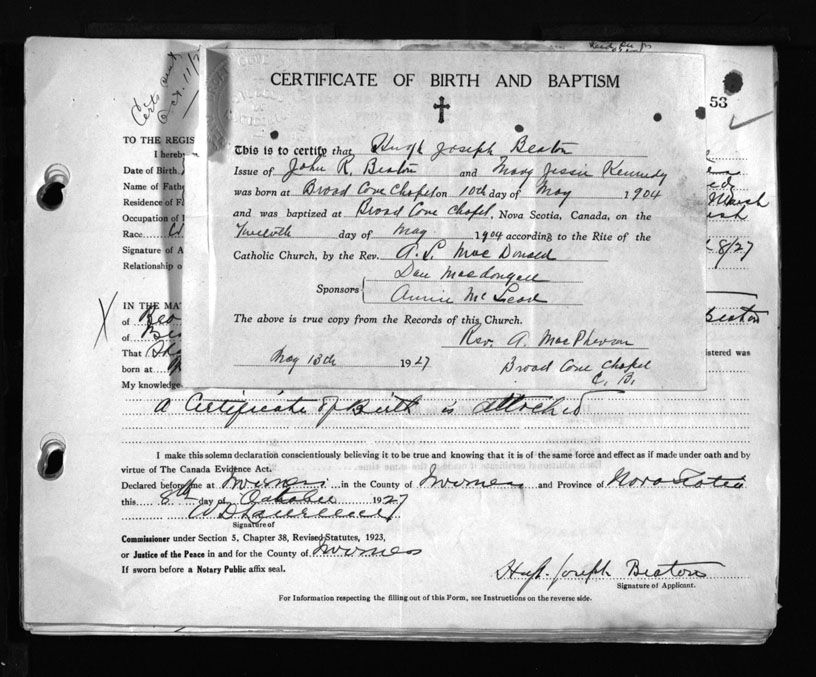 Certs sent
Oct. 11/2
53
CERTIFICATE OF BIRTH AND BAPTISM
This is to certify that Hugh Joseph Beaton
Issue of John R. Beaton and Mary Jessie Kennedy
was born at Broad Cove Chapel on 10th day of May 1904
and was baptized at Broad Cove Chapel, Nova Scotia, Canada, on the
Twelvth day of May 1904 according to the Rite of the
Catholic Church, by the Rev. A. L. MacDonald
Dan Macdougall
Sponsors
Annie McLeod
The above is true copy from the Records of this Church.
Rev. A. MacPherson
May 13th 1927
Broad Cove Chapel
C. B.
TO THE REGIS
I hereby
Date of Birth
Name of Fathe
Residence of F
Marsh
Occupation of
Race
8/27
Signature of A
Relationship o
X IN THE MAT
of Bea Beaton
of
That istered was
born at
My knowledge
A Certificate of Birth is attached
I make this solemn declaration conscientiously believing it to be true and knowing that it is of the same force and effect as if made under oath and by
virtue of The Canada Evidence Act.
Declared before me at Inverness in the County of Inverness and Province of Nova Scotia
this 8th day of October 1927
Signature of
Commissioner under Section 5, Chapter 38, Revised Statutes, 1923,
or Justice of the Peace in and for the County of Inverness
If sworn before a Notary Public affix seal.
Hugh Joseph Beaton
Signature of Applicant.
For Information respecting the filling out of this Form, see Instructions on the reverse side.